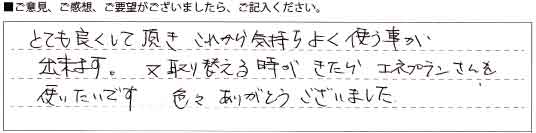 ■ご意見、ご感想、ご要望がございましたら、ご記入ください。
とても良くして頂き これから気持ちよく使う事が
出来ます。 又取り替える時が きたら エネプランさんを
使いたいです 色々 ありがとう ございました